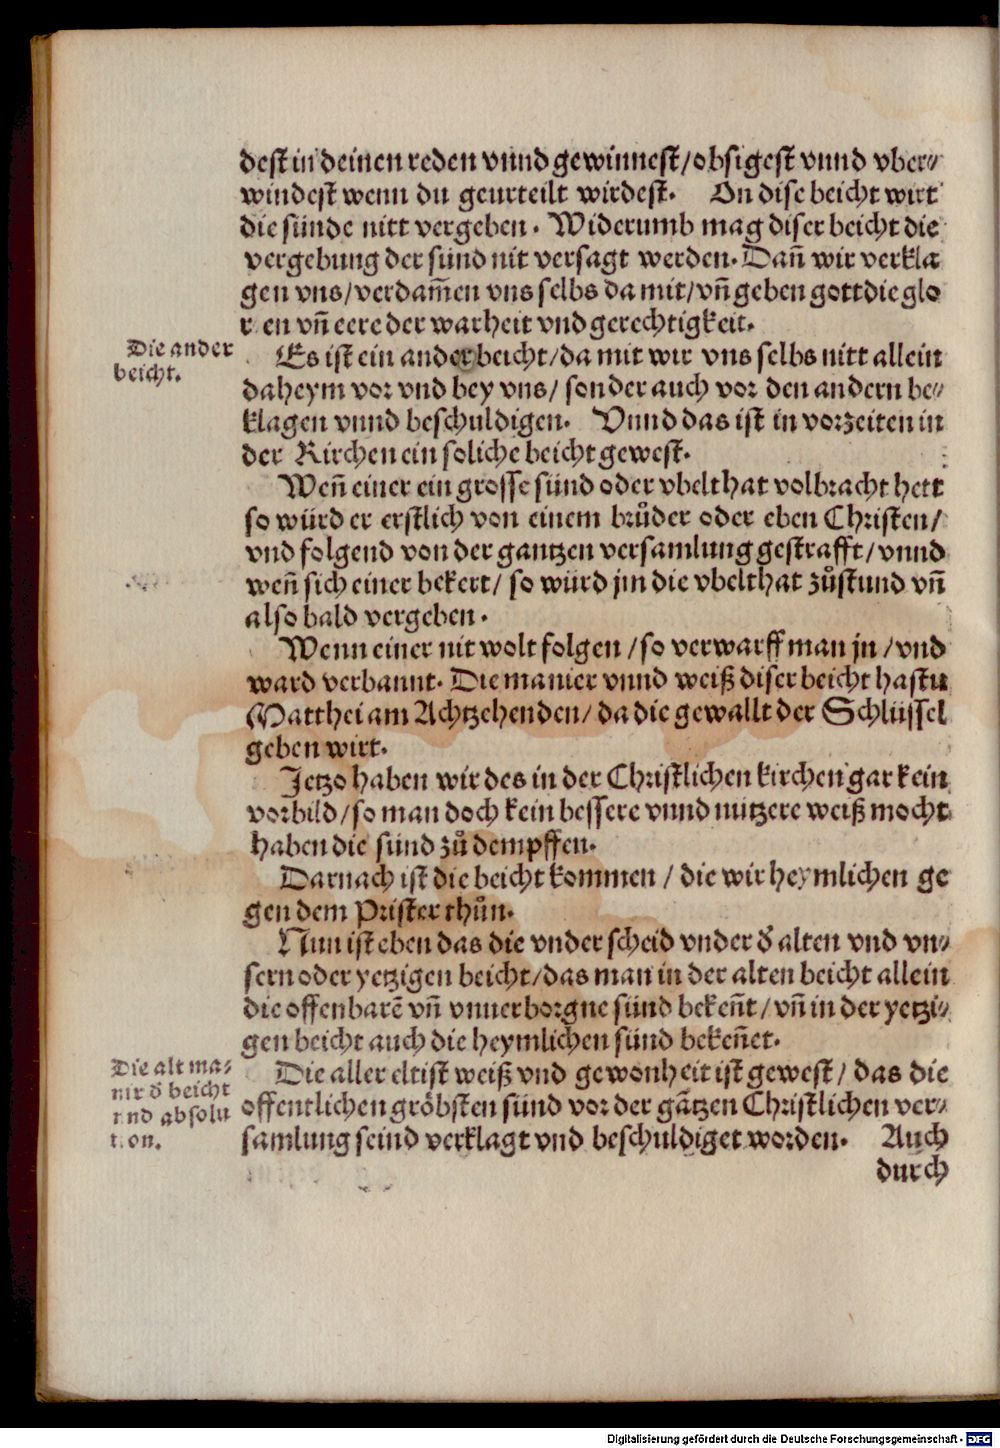 dest in deinen reden vnnd gewinnest/obsigest vnnd vber⸗
windest wenn du geurteilt wirdest. On dise beicht wirt
die sünde nitt vergeben. Widerumb mag diser beicht die
vergebung der sünd nit versagt werden. Dañ wir verkla
gen vns/verdam̃en vns selbs da mit/vñ geben gott die glo
r en vñ eere der warheit vnd gerechtigkeit.
Die ander
beicht.
Es ist ein ander beicht/da mit wir vns selbs nitt allein
daheym vor vnd bey vns/ sonder auch vor den andern be⸗
klagen vnnd beschuldigen. Vnnd das ist in vorzeiten in
der Kirchen ein soliche beicht gewest.
Weñ einer ein grosse sünd oder vbelthat volbracht hett
so würd er erstlich von einem brůder oder eben Christen/
vnd folgend von der gantzen versamlung gestrafft/vnnd
weñ sich einer bekert/ so würd jm die vbelthat zůstund vñ
also bald vergeben.
Wenn einer nit wolt folgen/so verwarff man jn/vnd
ward verbannt. Die manier vnnd weiß diser beicht hastu
Matthei am Achtzehenden/da die gewallt der Schlüssel
geben wirt.
Jetzo haben wir des in der Christlichen kirchen gar kein
vorbild/so man doch kein bessere vnnd nützere weiß mocht
haben die sünd zů dempffen.
Darnach ist die beicht kommen/ die wir heymlichen ge
gen dem Prister thůn.
Nun ist eben das die vnderscheid vnder d̕ alten vnd vn⸗
sern oder yetzigen beicht/das man in der alten beicht allein
die offenbarē vñ vnuerborgne sünd bekeñt/vñ in der yetzi⸗
gen beicht auch die heymlichen sünd bekeñet.
Die alt ma⸗
nir d̕ beicht
vnd absolu
tion.
Die aller eltist weiß vnd gewonheit ist gewest/ das die
offentlichen gröbsten sünd vor der gātzen Christlichen ver⸗
samlung seind verklagt vnd beschuldiget worden. Auch
durch
Digitalisierung gefördert durch die Deutsche Forschungsgemeinschaft - DFG